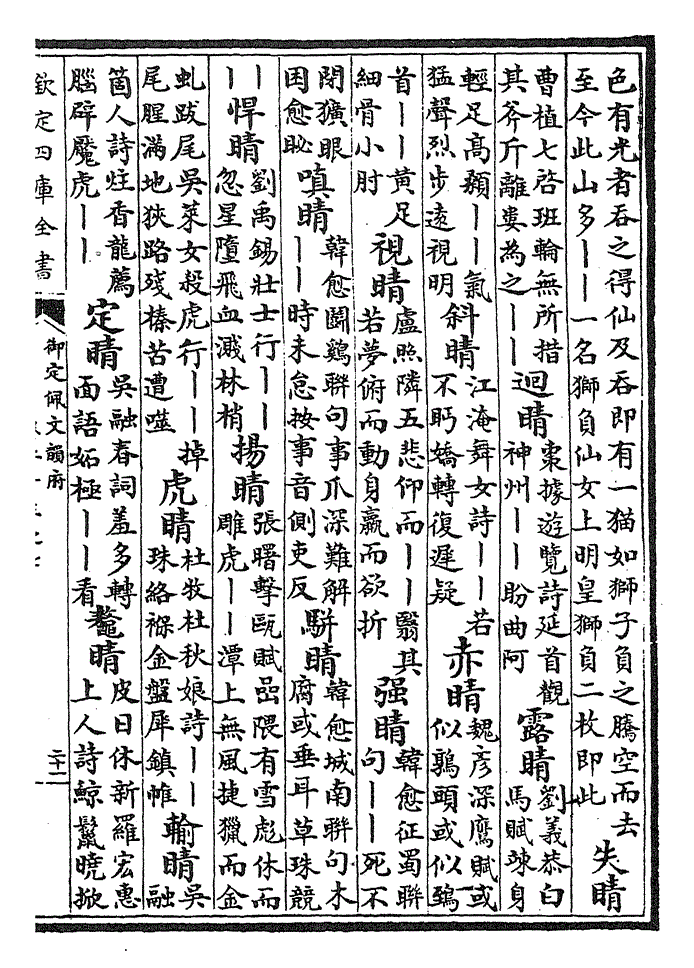 色有光者吞之得仙及吞即有一猫如獅子負之騰空而去
至今此山多丨丨一名獅負仙女上明皇獅負二枚即此
失睛
曹植七啓班輪無所措
其斧斤離婁為之丨丨
迴睛
棗據遊覽詩延首觀
神州丨丨盼曲阿
露睛
劉義恭白
馬賦竦身
輕足高顙丨丨氣
猛聲烈步遠視明
斜睛
江淹舞女詩丨丨若
不眄嬌轉復遲疑
赤睛
魏彦深鷹賦或
似鶉頭或似鵄
首丨丨黃足
細骨小肘
視睛
盧照隣五悲仰而丨丨翳其
若夢俯而動身羸而欲折
强睛
韓愈征蜀聯
句丨丨死不
閉獷眼
困愈眑
嗔睛
韓愈鬬鷄聯句事爪深難解
丨丨時未怠按事音側吏反
駢睛
韓愈城南聯句木
腐或垂耳草珠競
丨丨
悍睛
劉禹錫壯士行丨丨
忽星墮飛血濺林梢
揚睛
張曙擊甌賦嵒隈有雪彪休而
雕虎丨丨潭上無風捷獵而金
虬跋尾吳萊女殺虎行丨丨掉
尾腥滿地狹路殘榛苦遭噬
虎睛
杜牧杜秋娘詩丨丨
珠絡褓金盤犀鎮帷
輸睛
吳
融
箇人詩炷香龍薦
腦辟魘虎丨丨
定睛
吳融春詞羞多轉
面語妬極丨丨看
鼇睛
皮日休新羅宏惠
上人詩鯨鬣曉掀
欽定四庫全書
御定佩文韻府
二十二